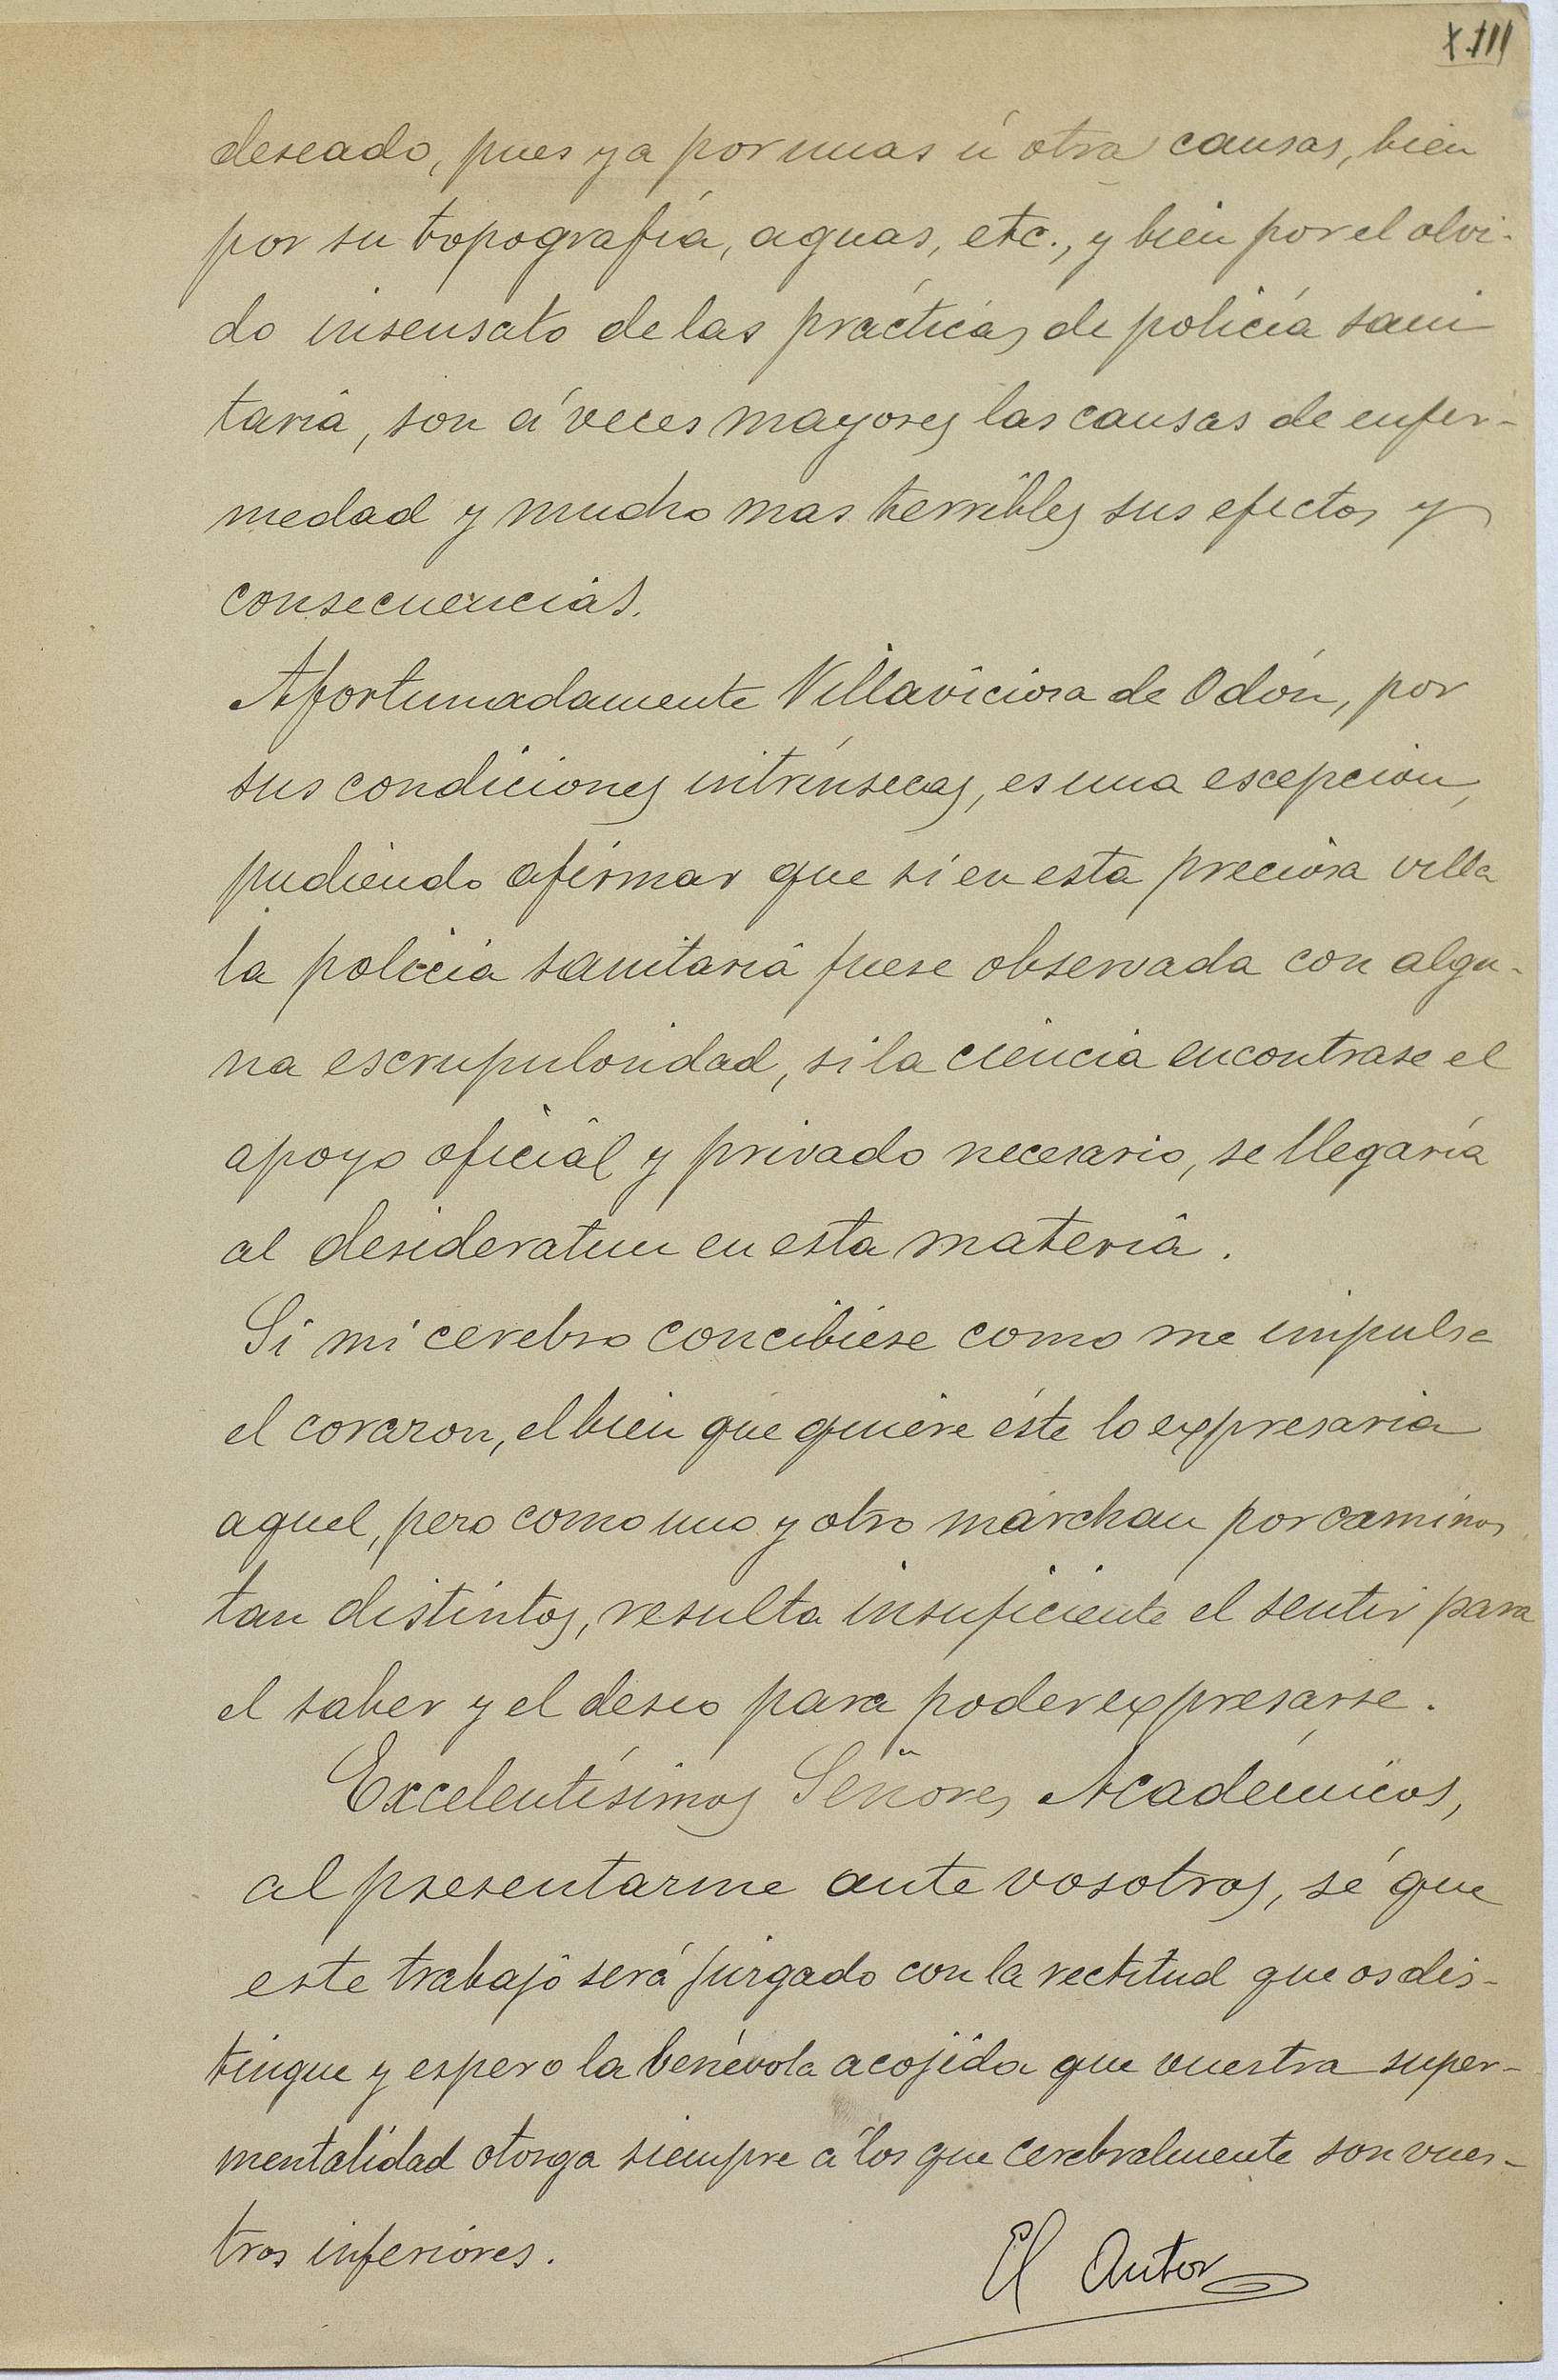 XIII
deseado, pues ya por unas ú otra causas, bien
por su topografía, aguas, etc., y bien por el olvi-
do insensato de las prácticas de policía sani
taria, son á veces mayores las causas de enfer-
medad y mucho mas terribles sus efectos y
consecuencias.
Afortunadamente Villaviciosa de Odón, por
sus condiciones intrínsecas, es una escepcion,
pudiendo afirmar que si en esta preciosa villa
la policia sanitaria fuese observada con algu-
na escrupulosidad, si la ciencia encontrase el
apoyo oficial y privado necesario, se llegaría
al desideratum en esta materia.
Si mi cerebro concibiese como me impulsa
el corazon, el bien que quiere éste lo expresaria
aquel, pero como uno y otro marchan por caminos
tan distintos, resulta insuficiente el sentir para
el saber y el deseo para poder expresarse.
Excelentísimos Señores Académicos,
al presentarme ante vosotros, sé que
este trabajo será juzgado con la rectitud que os dis-
tingue y espero la benévola acojida que vuestra super-
mentalidad otorga siempre á los que cerebralmente son vues-
tros inferiores.
El Autor